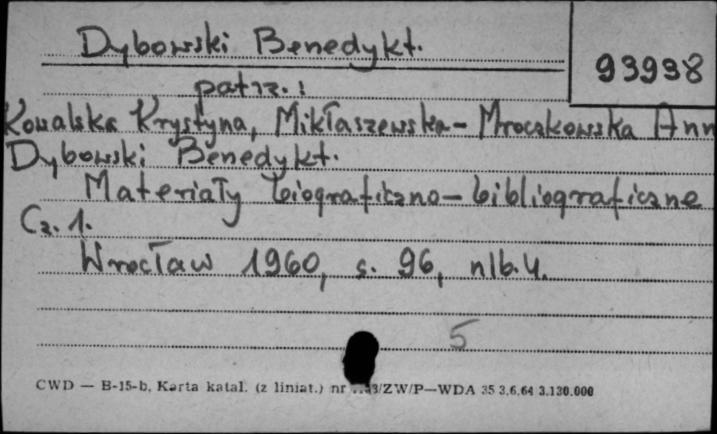 Dybowski Benedykt.
93938
patrz.:
Kowalska Krystyna, Mikłaszewska-Mroczkowska Ann
Dybowski Benedykt.
Materiały biograficzno-bibliograficzne
Cz. 1.
Wrocław 1960, s. 96, nlb. 4.
5
CWD — B-15-b. Karta katal. (z liniat.) nr /ZW/P—WDA 35 3.6.64 3.130.000